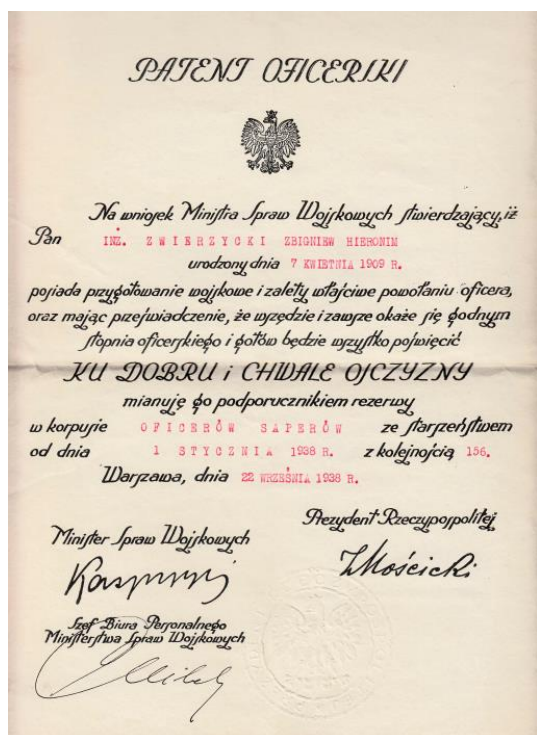 PATENT OFICERSKI
Na wniosek Ministra Spraw Wojskowych stwierdzający, iż
Pan INŻ. ZWIERZYCKI ZBIGNIEW HIERONIM
urodzony dnia 7 KWIETNIA 1909 R.
posiada przygotowanie wojskowe i zalety właściwe powołaniu oficera,
oraz mając przeświadczenie, że wszędzie i zawsze okaże się godnym
stopnia oficerskiego i gotów będzie wszystko poświęcić
KU DOBRU i CHWALE OJCZYZNY
mianuję go podporucznikiem rezerwy
w korpusie OFICERÓW SAPERÓW ze starszeństwem
od dnia 1 STYCZNIA 1938 R. z kolejnością 156.
Warszawa, dnia 22 WRZEŚNIA 1938 R.
Prezydent Rzeczypospolitej
Minister Spraw Wojskowych
IMościcki
Kasprzycki
Szef Biura Personalnego
Ministerstwa Spraw Wojskowych